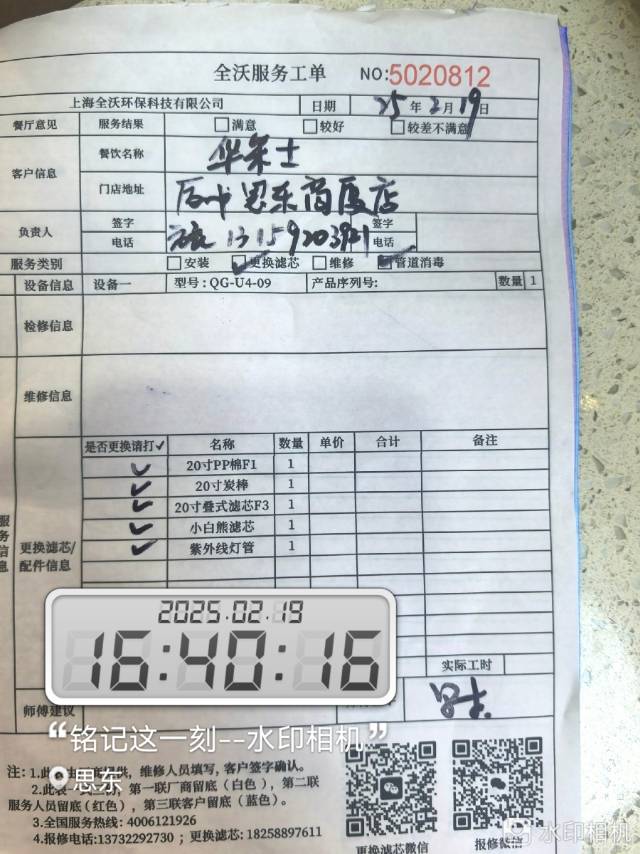 全沃服务工单 NO:5020812
上海全沃环保科技有限公司 日期 25年2月19日
餐厅意见 服务结果 满意 较好 较差不满意
客户信息 餐饮名称 华莱士
门店地址 思东商厦店
负责人 签字 签字
电话 13159203921 电话
服务类别 安装 ✓更换滤芯 维修 ✓管道消毒
设备信息 设备一 型号:QG-U4-09 产品序列号: 数量 1
检修信息
维修信息
是否更换请打✓ 名称 数量 单价 合计 备注
✓ 20寸PP棉F1 1
✓ 20寸炭棒 1
✓ 20寸叠式滤芯F3 1
✓ 小白熊滤芯 1
✓ 紫外线灯管 1
服务信息
更换滤芯/
配件信息
2025.02.19
16:40:16
实际工时
师傅建议
“铭记这一刻--水印相机”
思东
注: 1.此 维修人员填写, 客户签字确认。
2.此表 第一联厂商留底(白色), 第二联
服务人员留底(红色), 第三联客户留底(蓝色)。
3.全国服务热线: 4006121926
4.报修电话:13732292730 ; 更换滤芯:18258897611
更换滤芯微信 报修微信
水印相机